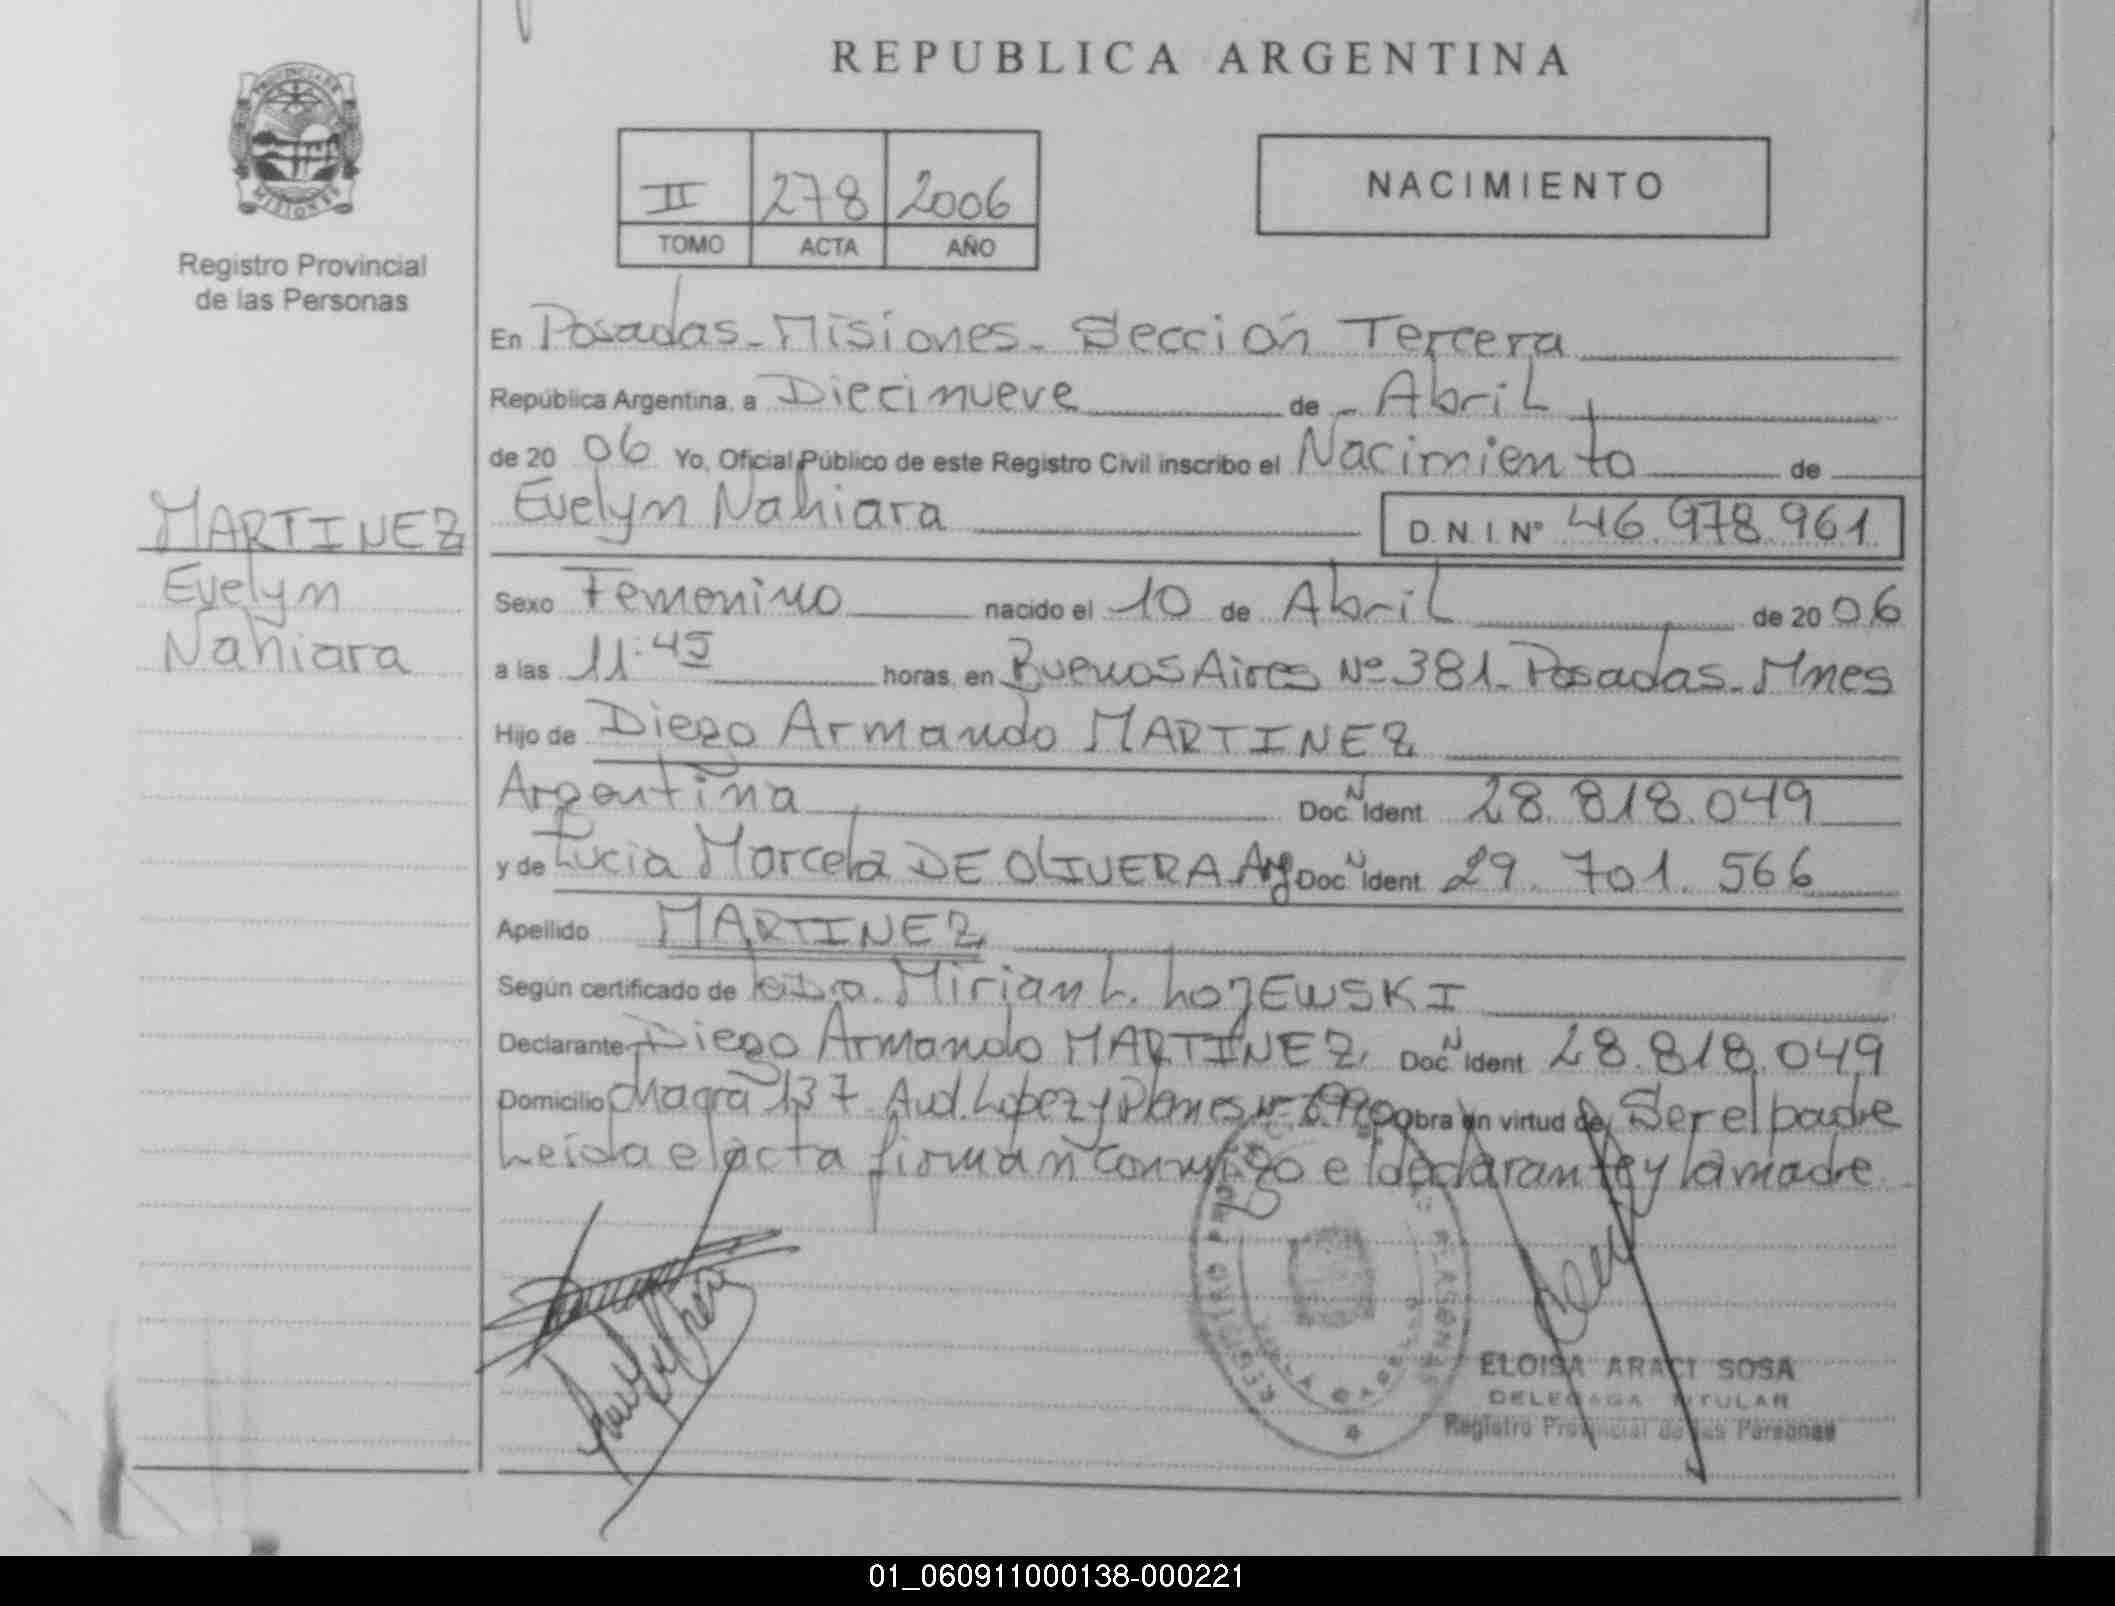 REPUBLICA ARGENTINA
PROVINCIA DE
MISIONES
Registro Provincial
de las Personas
II 278 2006
TOMO ACTA AÑO
NACIMIENTO
En Posadas - Misiones - Sección Tercera
República Argentina, a Diecinueve de Abril
de 20 06 Yo, Oficial Público de este Registro Civil inscribo el Nacimiento de
Evelyn Nahiara D.N.I. Nº 46.978.961
MARTINEZ
Evelyn
Nahiara
Sexo Femenino nacido el 10 de Abril de 20 06
a las 11:45 horas, en Buenos Aires Nº 381 - Posadas - Mnes
Hijo de Diego Armando MARTINEZ
Argentina Doc. N Ident 28.818.049
y de Lucia Marcela DE OLIVERA Arg Doc. N Ident 29.701.566
Apellido MARTINEZ
Según certificado de Mirian L. LOJEWSKI
Declarante Diego Armando MARTINEZ Doc. N Ident 28.818.049
Domicilio chacra 137 Avd. Lopez y Planes Obra en virtud de Ser el padre
Leída el acta firman conmigo el declarante y la madre
ELOISA ARACI SOSA
DELEGADA TITULAR
Registro Provincial de las Personas
01_060911000138-000221